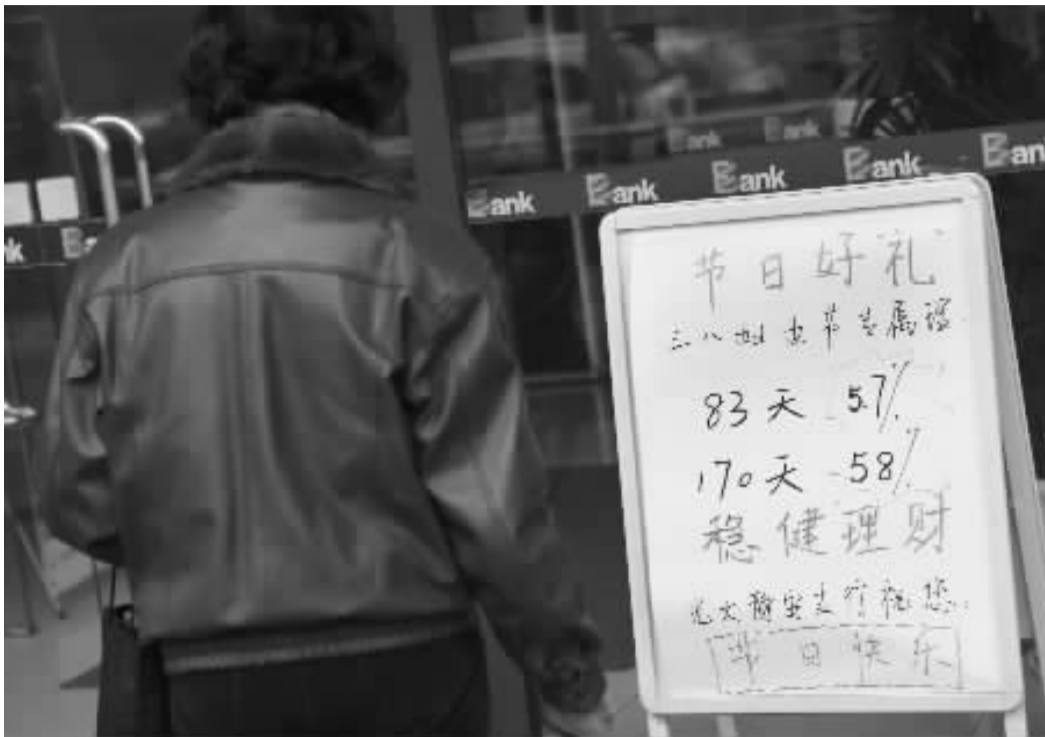 Bank Bank
Bank Bank Bank Ban
k Ba
节日好“礼”
三八妇女节专属理
83天 5.7%
170天 5.8%
稳健理财
光大 支行祝您:
节日快乐